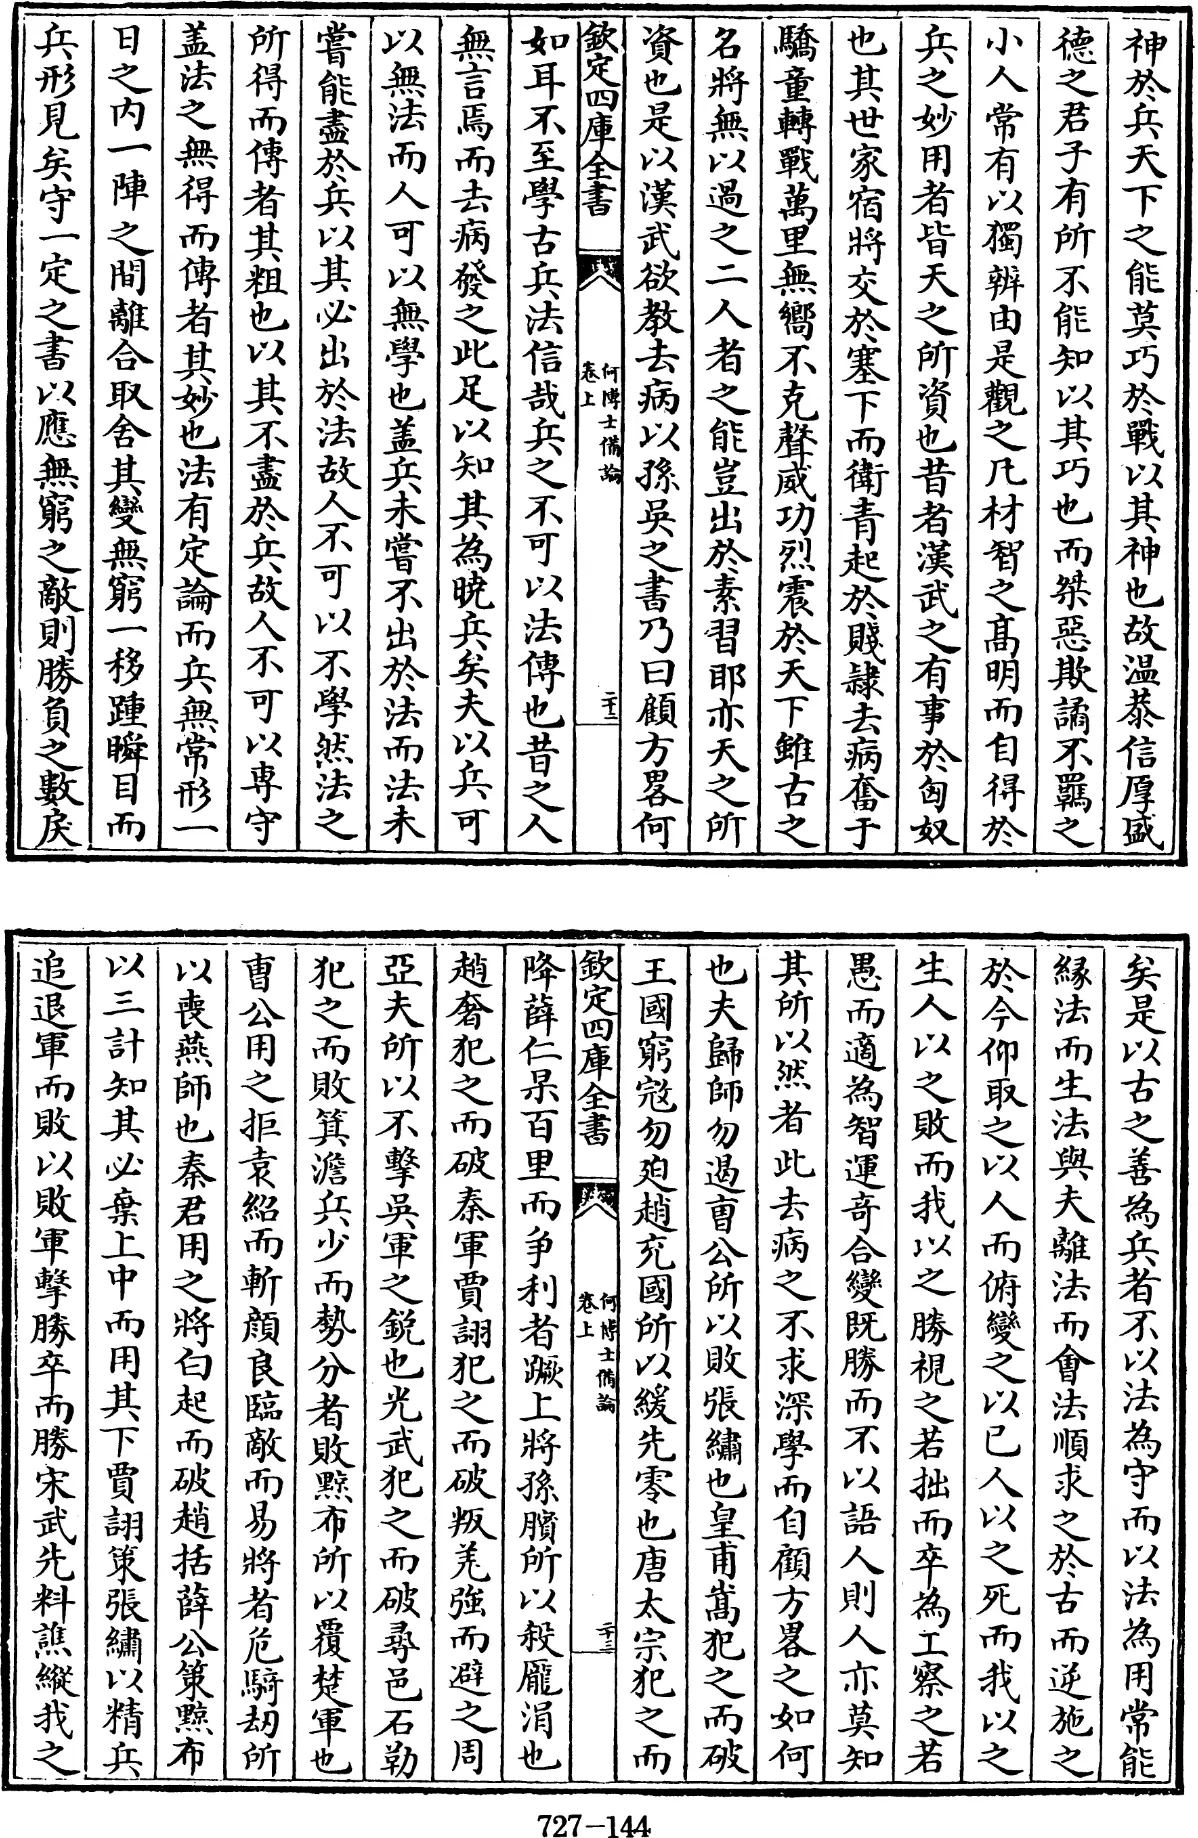 神於兵天下之能莫巧於戰以其神也故温恭信厚盛
德之君子有所不能知以其巧也而桀惡欺譎不羈之
小人常有以獨辨由是觀之凡材智之髙明而自得於
兵之妙用者皆天之所資也昔者漢武之有事於匈奴
也其世家宿將交於塞下而衛青起於賤隷去病奮于
驕童轉戰萬里無嚮不克聲威功烈震於天下雖古之
名將無以過之二人者之能豈出於素習耶亦天之所
資也是以漢武欲教去病以孫吳之書乃曰顧方畧何
欽定四庫全書
何博士備論
卷上
二十二
如耳不至學古兵法信哉兵之不可以法傳也昔之人
無言焉而去病發之此足以知其為曉兵矣夫以兵可
以無法而人可以無學也盖兵未嘗不出於法而法未
嘗能盡於兵以其必出於法故人不可以不學然法之
所得而傳者其粗也以其不盡於兵故人不可以専守
盖法之無得而傳者其妙也法有定論而兵無常形一
日之内一陣之間離合取舍其變無窮一移踵瞬目而
兵形見矣守一定之書以應無窮之敵則勝負之數戾
矣是以古之善為兵者不以法為守而以法為用常能
縁法而生法與夫離法而會法順求之於古而逆施之
於今仰取之以人而俯變之以已人以之死而我以之
生人以之敗而我以之勝視之若拙而卒為工察之若
愚而適為智運奇合變既勝而不以語人則人亦莫知
其所以然者此去病之不求深學而自顧方畧之如何
也夫歸師勿遏曹公所以敗張繡也皇甫嵩犯之而破
王國窮寇勿廹趙充國所以緩先零也唐太宗犯之而
欽定四庫全書
何博士備論
卷上
二十三
降薛仁杲百里而争利者蹶上將孫臏所以殺龎涓也
趙奢犯之而破秦軍賈詡犯之而破叛羌強而避之周
亞夫所以不擊吳軍之鋭也光武犯之而破尋邑石勒
犯之而敗箕澹兵少而勢分者敗黥布所以覆楚軍也
曹公用之拒袁紹而斬顔良臨敵而易將者危騎劫所
以喪燕師也秦君用之將白起而破趙括薛公策黥布
以三計知其必棄上中而用其下賈詡策張繡以精兵
追退軍而敗以敗軍擊勝卒而勝宋武先料譙縱我之
727-144